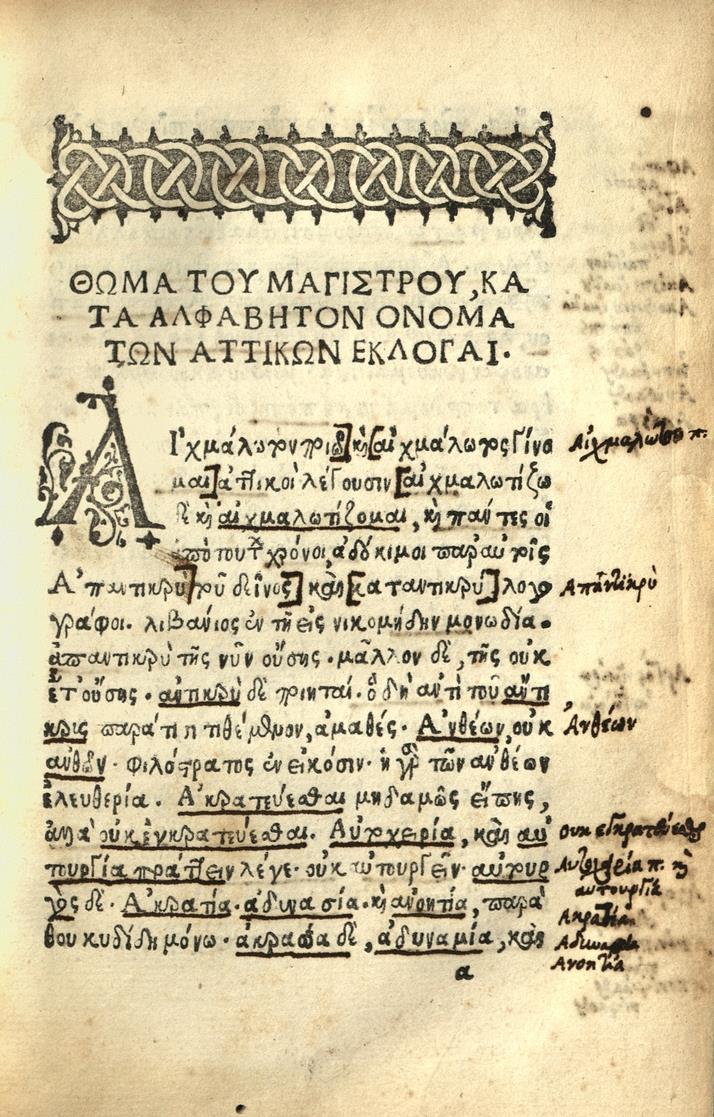 ΘΩΜΑ ΤΟΥ ΜΑΓΙΣΤΡΟΥ, ΚΑ
ΤΑ ΑΛΦΑΒΗΤΟΝ ΟΝΟΜΑ
ΤΩΝ ΑΤΤΙΚΩΝ ΕΚΛΟΓΑΙ.
ΑἸχμάλωτον ποιῶ] καὶ [αἰχμάλωτος γίνο
μαι] ἀττικοὶ λέγουσιν [αἰχμαλωτίζω
δὲ καὶ αἰχμαλωτίζομαι, καὶ πάντες οἱ
ἀπὸ τούτου χρόνοι, ἀδόκιμοι παρ' αὐτοῖς
Ἀπαντικρὺ] τοῦ δεῖνος] καὶ [καταντικρύ] λογο
γράφοι. λιβάνιος ἐν τῇ εἰς νικομήδην μονωδία.
ἀπαντικρὺ τῆς νῦν οὔσης. μᾶλλον δὲ, τῆς οὐκ
ἔτ' οὔσης. ἀντικρὺ δὲ ποιηταί. ὃ δὴ ἀντὶ τοῦ ἄντι
κρις παρά τισι τιθέμενον, ἀμαθές. Ἀνθέων, οὐκ
ἀνθῶν. φιλόστρατος ἐν εἰκόσιν. ἡ γὰρ τῶν ἀνθέων
ἐλευθερία. Ἀκρατεύεσθαι μηδαμῶς εἴπῃς,
ἀλλ' οὐκ ἐγκρατεύεσθαι. Αὐτοχειρία, καὶ αὐ
τουργία πράττειν λέγε. οὐκ αὐτουργεῖν. αὐτουρ
γὸς δέ. Ἀκρατία. ἀδυνασία. καὶ ἀνοητία, παρὰ
θουκυδίδῃ μόνω. ἀκρασία δὲ, ἀδυναμία, καὶ
α
Αἰχμάλωτον π.
Ἀπαντικρὺ
Ἀνθέων
ουκ εγκρατεύεσθαι
Αυτοχειρία π. καὶ
αυτουργία
Ακρατία
Αδυνασία
Ανοητία